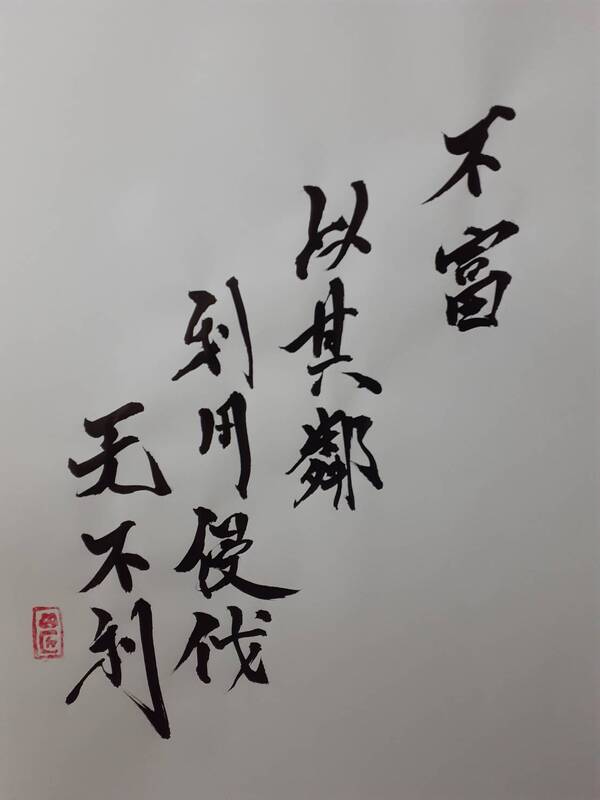 不富
以其鄰
利用侵伐
无不利